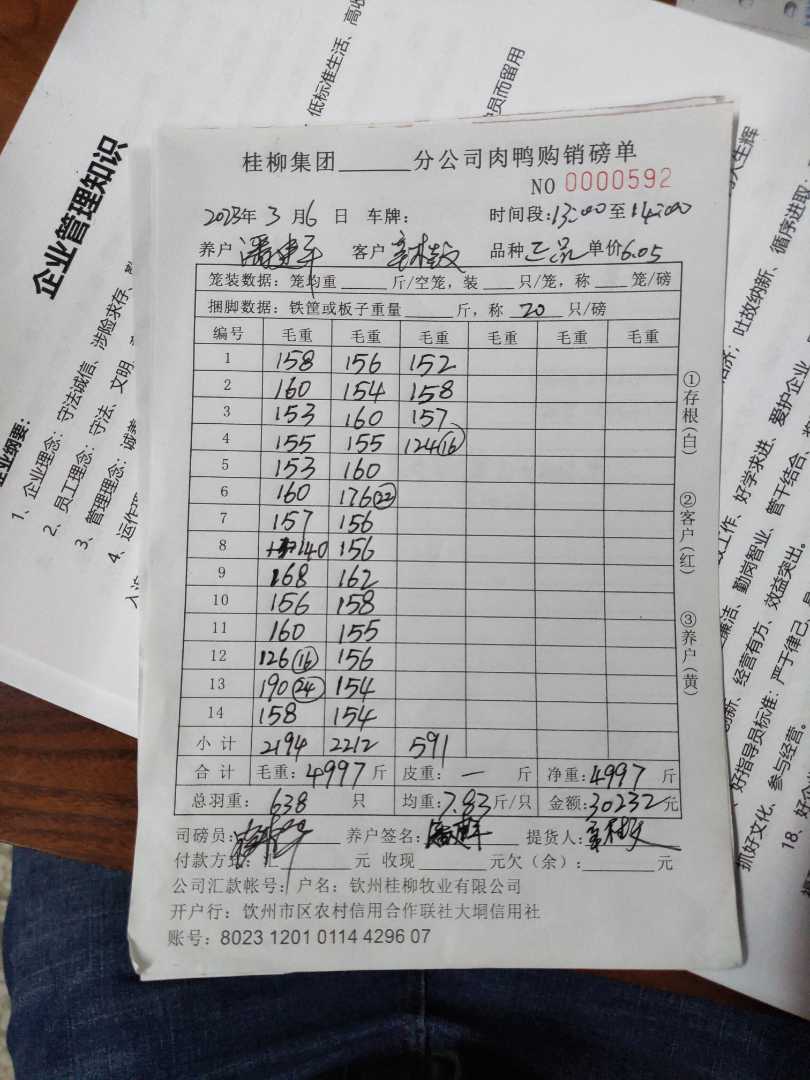 企业管理知识
桂柳集团______分公司肉鸭购销磅单
NO 0000592
2023年 3 月 6 日 车牌: 时间段:13:00至14:00
养户 潘建平 客户 品种 正品 单价6.05
笼装数据: 笼均重 _____ 斤/空笼, 装 ___ 只/笼, 称 ___ 笼/磅
捆脚数据: 铁筐或板子重量 _____ 斤, 称 20 只/磅
编号 毛重 毛重 毛重 毛重 毛重 毛重
1 158 156 152
2 160 154 158
3 153 160 157
4 155 155 124(16)
5 153 160
6 160 176(22)
7 157 156
8 140 156
9 168 162
10 156 158
11 160 155
12 126(16) 156
13 190(24) 154
14 158 154
小 计 2194 2212 591
合 计 毛重: 4997 斤 皮重: 一 斤 净重: 4997 斤
总羽重: 638 只 均重: 7.83 斤/只 金额: 30232 元
司磅员: 养户签名: 潘建平 提货人:
付款方式: 汇______元 收现______元欠(余): ______元
公司汇款帐号: 户名: 钦州桂柳牧业有限公司
开户行: 钦州市区农村信用合作联社大垌信用社
账号: 8023 1201 0114 4296 07
①存根(白)
②客户(红)
③养户(黄)
1、企业理念: 守法诚信、涉险求存、
2、员工理念: 守法、文明、
3、管理理念:
4、运作
低标准生活、高
员而留用
吐故纳新、循序进取:
好学求进、爱护企业
勤岗智业、管干结合、
经营有方、效益突出。
好指导员标准: 严于律己、
抓好文化、参与经营。
18、